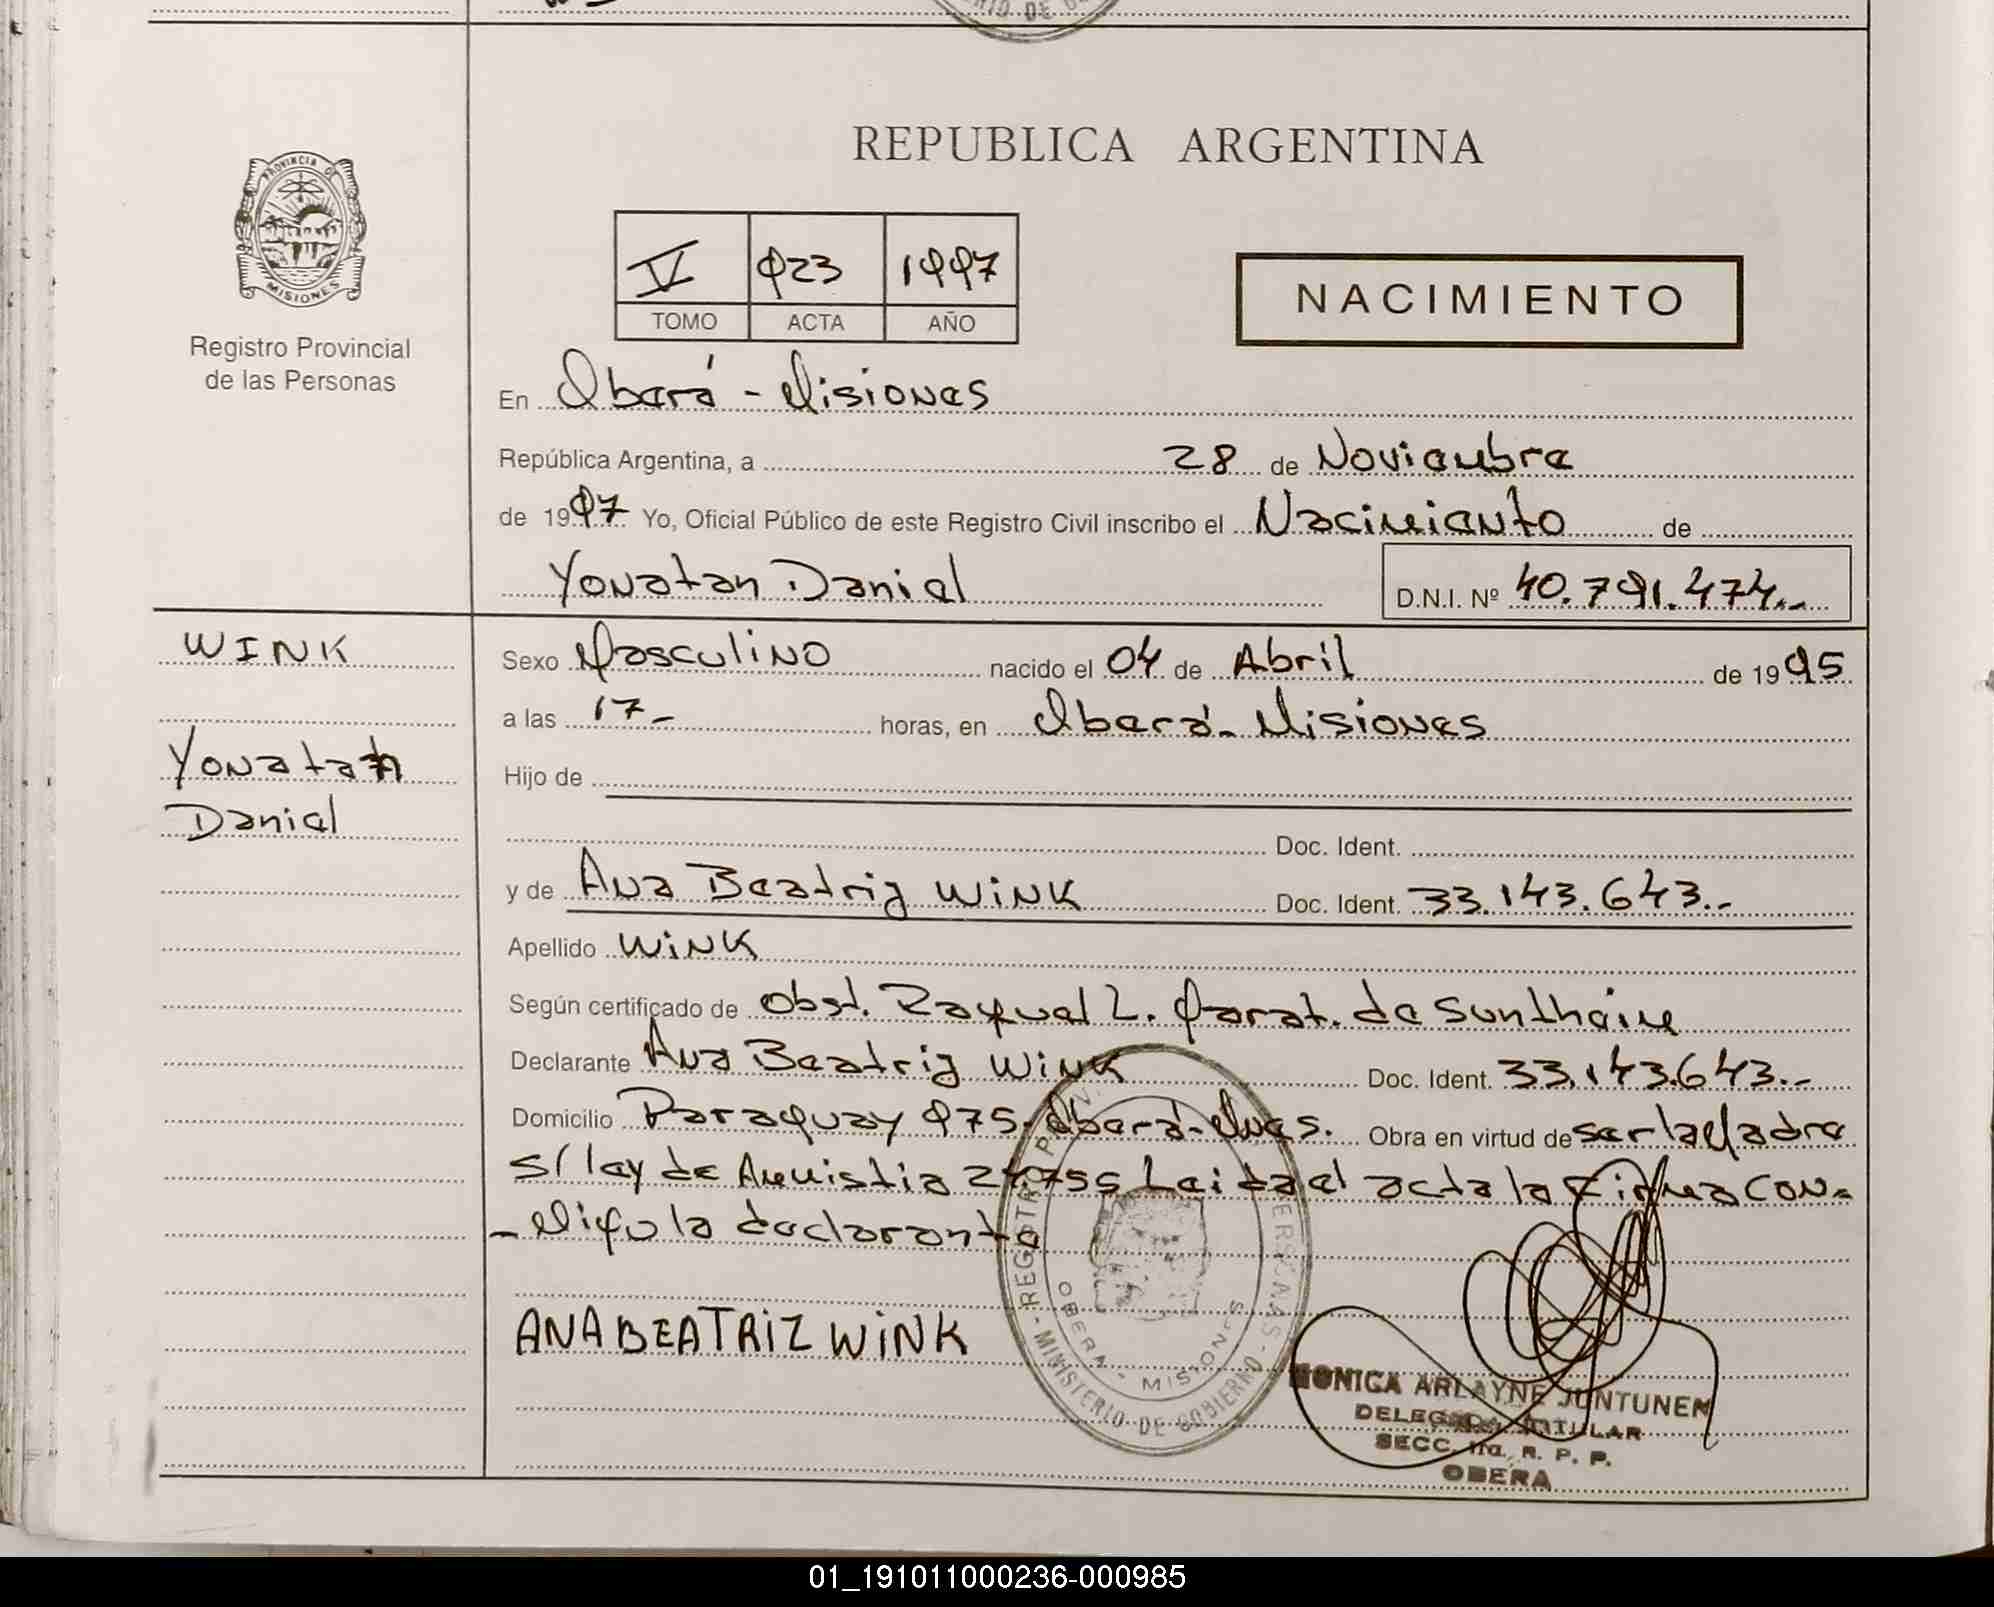 REPUBLICA ARGENTINA
PROVINCIA DE
MISIONES
Registro Provincial
de las Personas
V 923 1997
TOMO ACTA AÑO
NACIMIENTO
En Oberá - Misiones
República Argentina, a 28 de Noviembre
de 1997 Yo, Oficial Público de este Registro Civil inscribo el Nacimiento de
Yonatan Daniel D.N.I. Nº 40.791.474.-
WINK
Yonatan
Daniel
Sexo Masculino nacido el 04 de Abril de 1995
a las 17- horas, en Oberá - Misiones
Hijo de
Doc. Ident.
y de Ana Beatriz WiNK Doc. Ident. 33.143.643.-
Apellido WiNK
Según certificado de Obst. Raquel L. de
Declarante Ana Beatriz WiNK Doc. Ident. 33.143.643.-
Domicilio Paraguay 975. Oberá - Mnes. Obra en virtud de ser la Madre
s/ ley de Amnistia 24755 Leida el acta la firma con-
-Migo la declarante
ANA BEATRIZ WiNK
REGISTRO PROV. PERSONAS - MINISTERIO DE GOBIERNO -
OBERA - MISIONES
MONICA ARLAYNE JUNTUNEN
DELEGADA TITULAR
SECC. 1ra. R. P. P.
OBERA
01_191011000236-000985